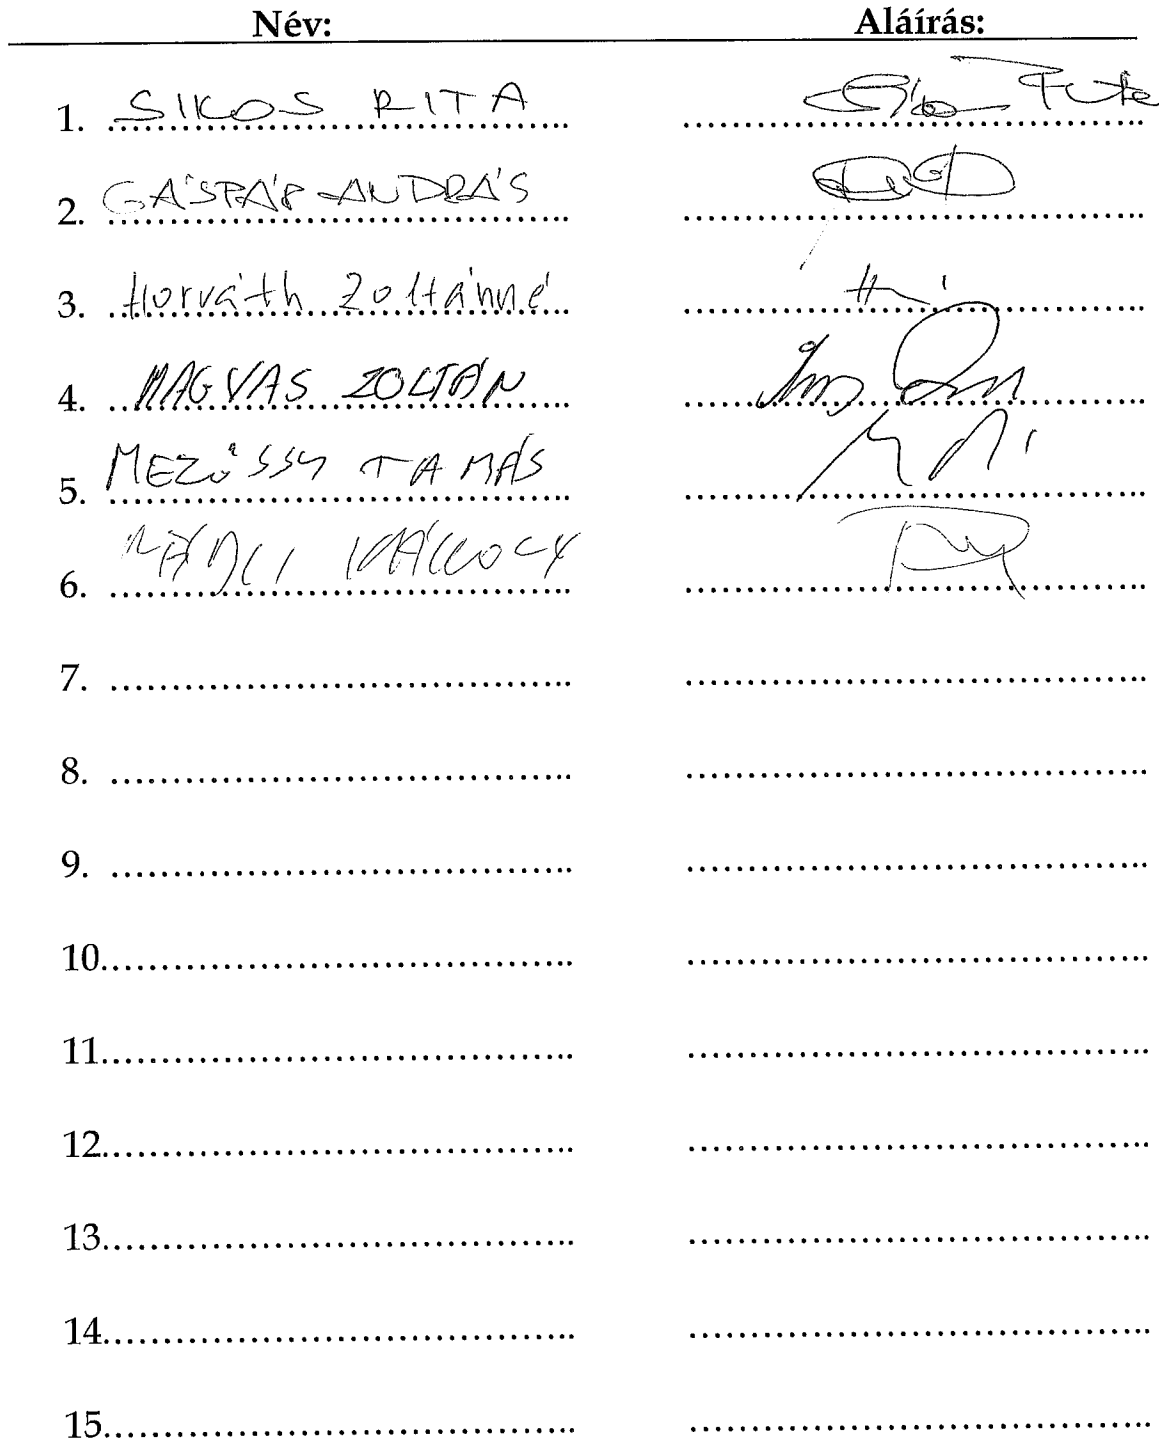 Név: Aláírás:
1. SIKOS RITA Sikos Rita
2. GÁSPÁR ANDRÁS
3. Horváth Zoltánné
4. MAGVAS ZOLTÁN
5. MEZŐSSY TAMÁS
6. KÁROLY
7.
8.
9.
10.
11.
12.
13.
14.
15.